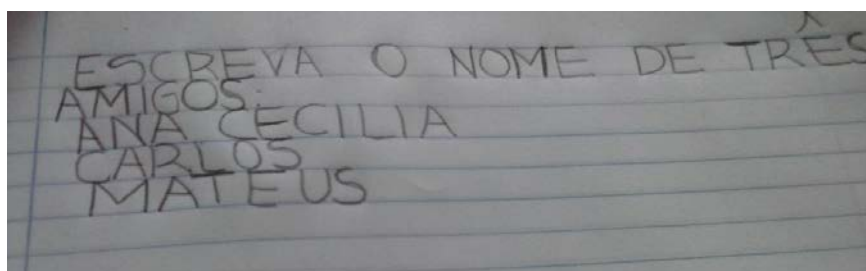 ESCREVA O NOME DE TRÊS
AMIGOS.
ANA CECILIA
CARLOS
MATEUS